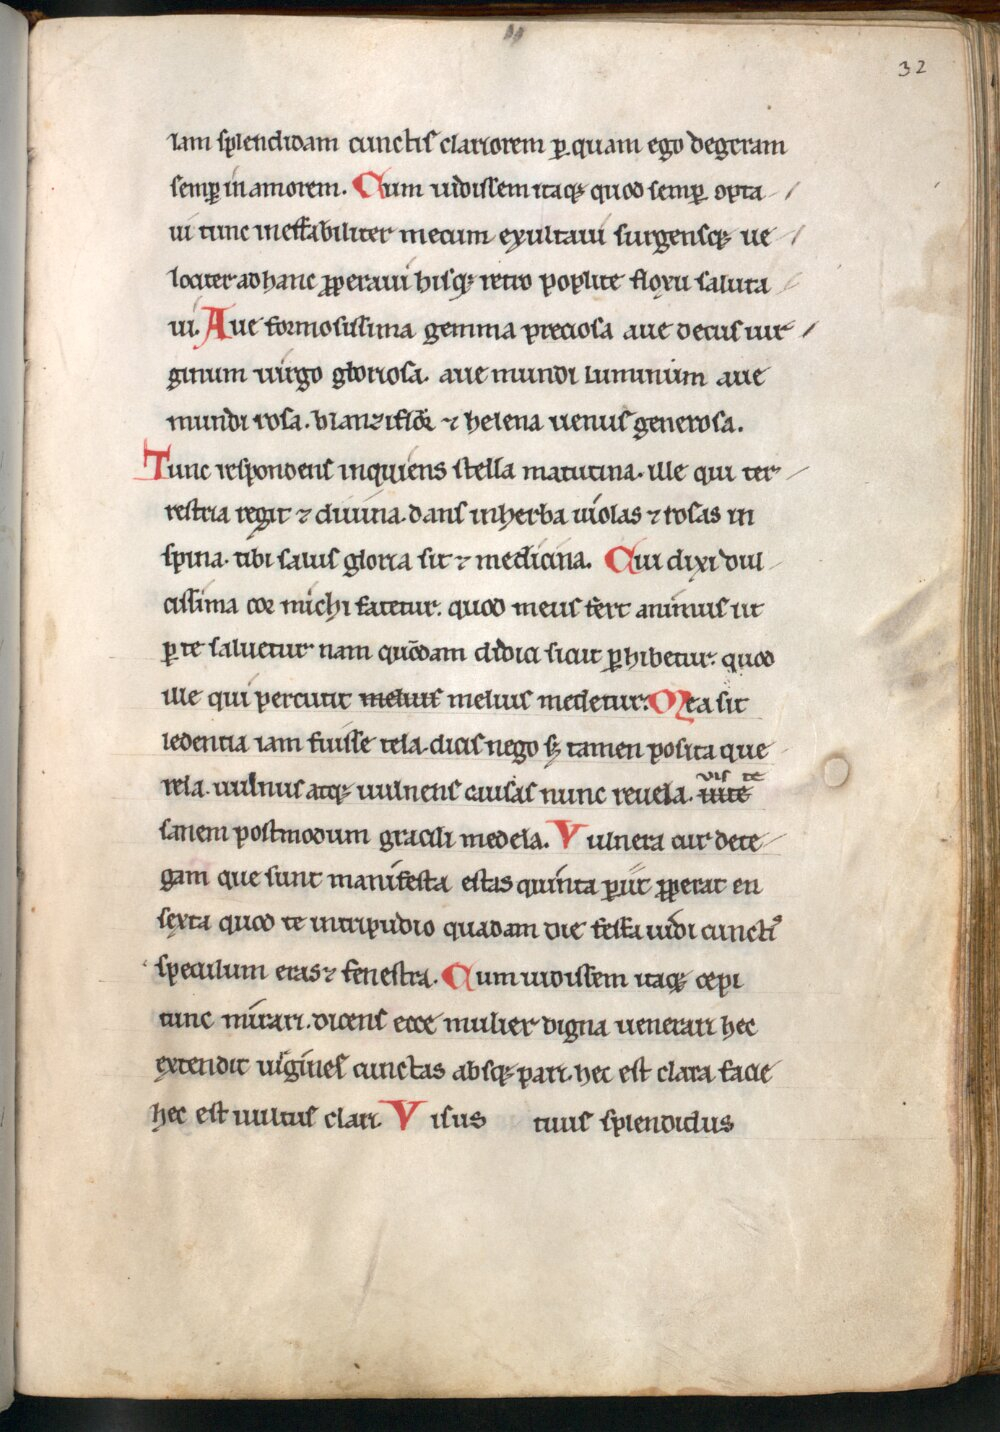 32
iam splendidam cunctis clariorem ꝑ quam ego degeram
semꝑ in amorem. Cum uidissem itaqꝫ quod semꝑ opta
ui tunc ineffabiliter mecum exultaui surgensqꝫ ue
lociter ad hanc ꝓperaui hisqꝫ retro poplite flexu saluta
ui. Aue formosissima gemma preciosa aue decus uir
ginum uirgo gloriosa. aue mundi luminum aue
mundi rosa. blanziflor ⁊ helena uenus generosa.
Tunc respondens inquiens stella matutina. ille qui ter
restria regit ⁊ diuina. dans in herba uiolas ⁊ rosas in
spina. tibi salus gloria sit ⁊ medicina. Cui dixi dul
cissima cor michi fatetur. quod meus fert animus ut
ꝑ te saluetur nam quōdam didici sicut ꝑhibetur. quod
ille qui percutit melius melius medetur. Mea sit
ledentia iam fuisse tela. dicis nego sꝫ tamen posita que
rela. uulnus atqꝫ uulneris causas nunc reuela. uite
vis te
sanem postmodum gracili medela. Vulnera cur dete
gam que sunt manifesta estas quinta ꝑiit ꝓperat en
sexta quod te in tripudio quadam die festa uidi cunctiꝰ
speculum eras ⁊ fenestra. Cum uidissem itaqꝫ cepi
tunc mirari. dicens ecce mulier digna uenerari hec
extendit uirgines cunctas absqꝫ pari. hec est clara facie
hec est uultus clari. Visus tuus splendidus